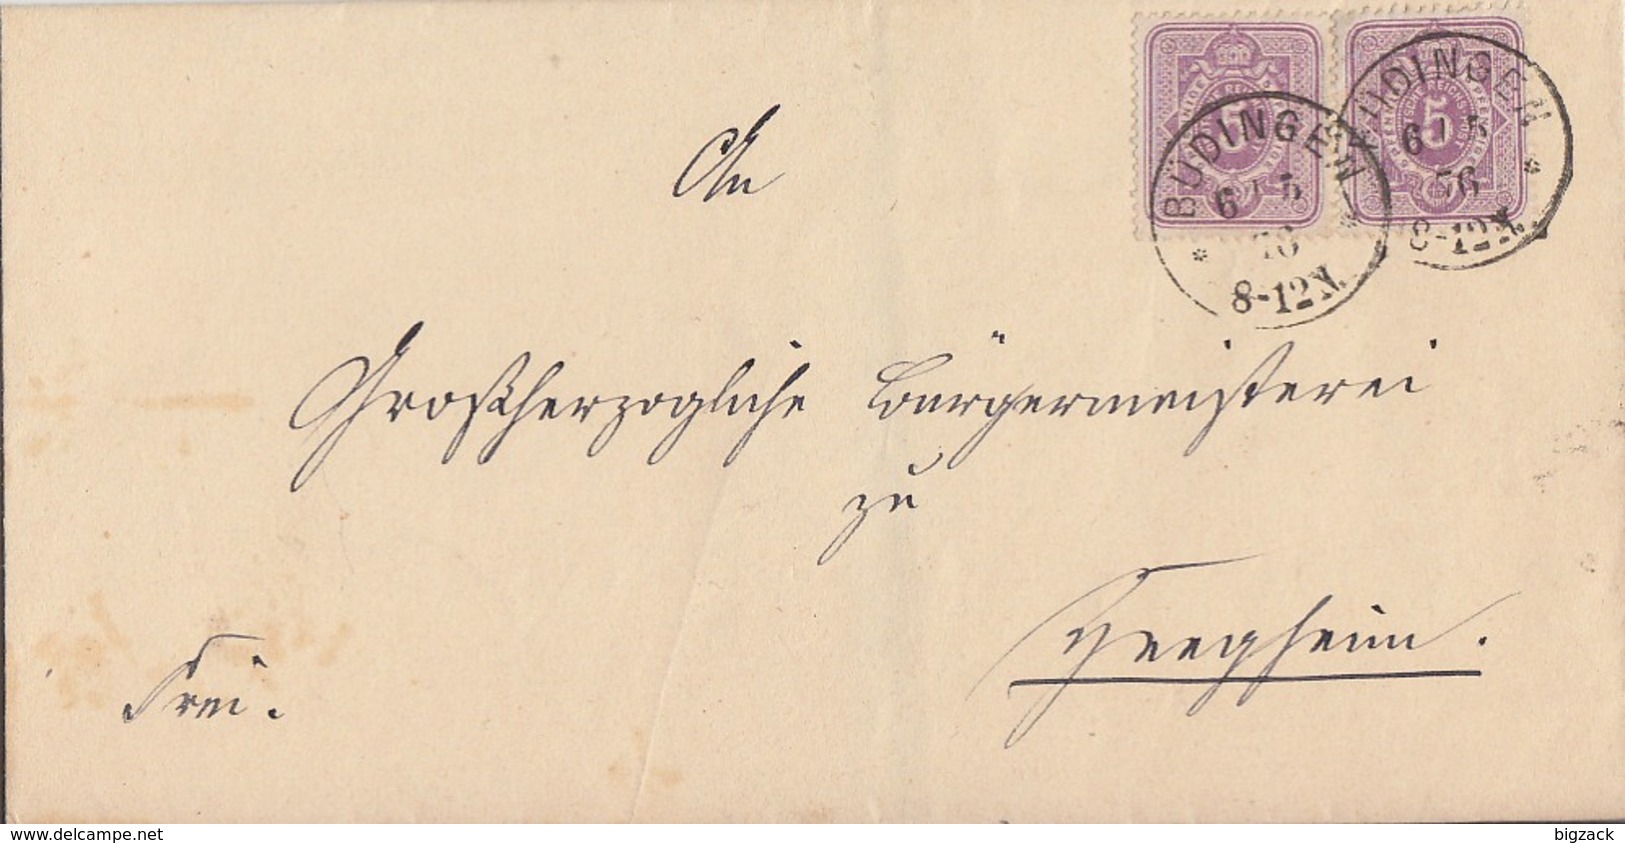 BÜDINGEN
6 / 5
76
8-12 N.
BÜDINGEN
6 / 5
76
8-12 N.
5
An
Großherzogliche Bürgermeisterei
zu
Heegheim.
Frei.
www.delcampe.net
bigzack